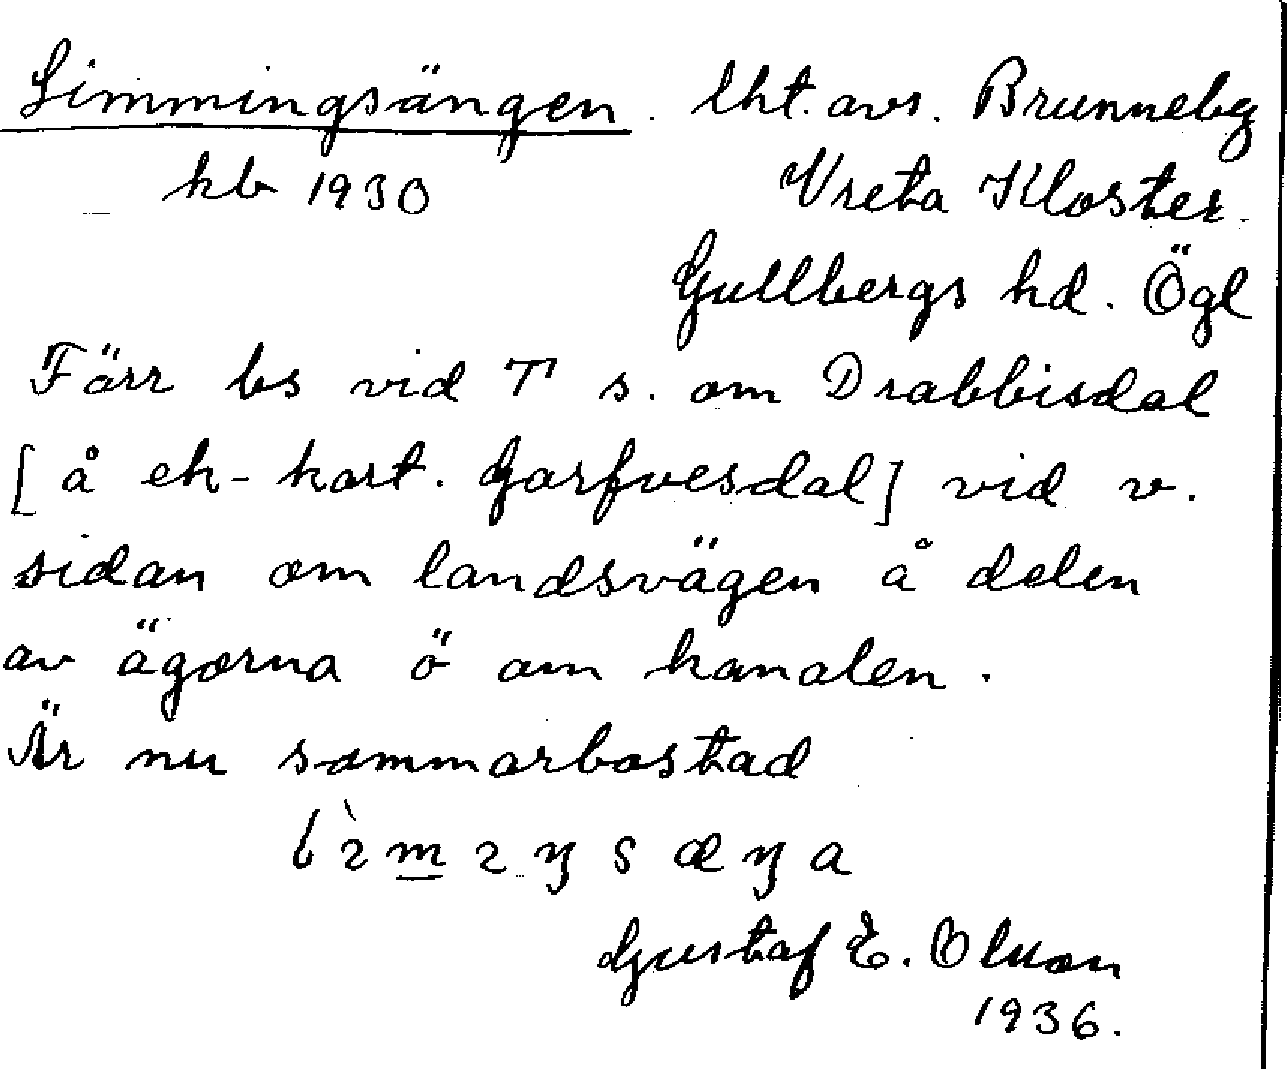 Limmingsängen. lht. avs. Brunneby
kb 1930 Vreta Kloster.
Gullbergs hd. Ögl
Färr bs vid T s. om Drabbisdal
[å ek-kart. Garfvesdal] vid v.
sidan om landsvägen å delen
av ägorna ö om kanalen.
Är nu sommarbostad
Gustaf E. Olsson
1936.